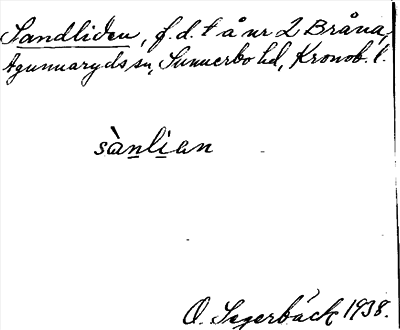 Sandliden, f.d. t å nr 2 Bråna,
Agunnaryds sn, Sunnerbo hd, Kronob. l.
sànlian
O. Segerbäck 1938.